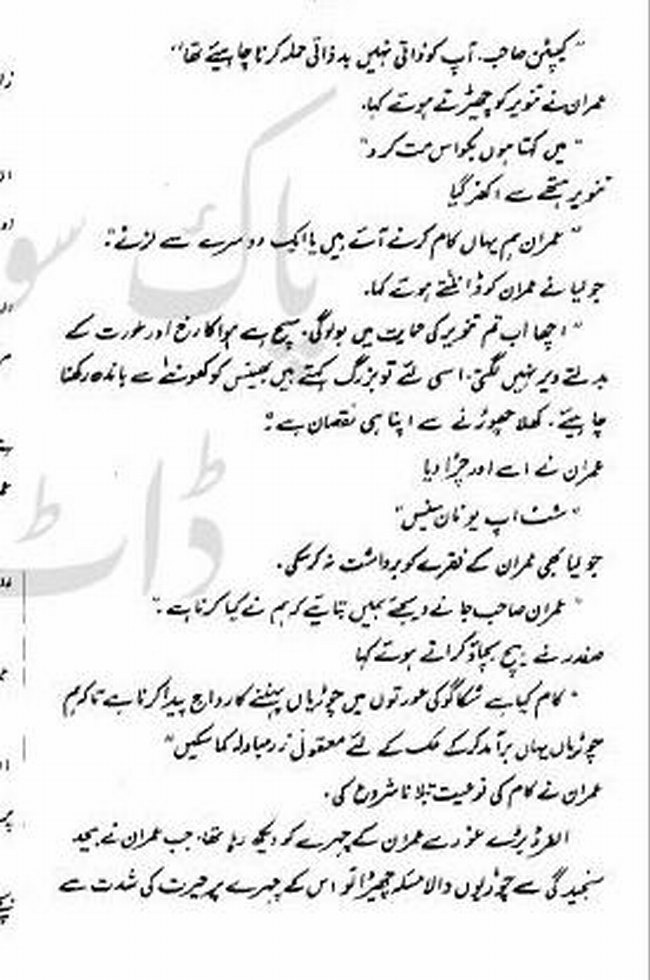 "کیپٹن صاحب۔ آپ کو ذاتی نہیں بدذاتی حملہ کرنا چاہیئے تھا"
عمران نے تنویر کو چھیڑتے ہوئے کہا۔
"میں کہتا ہوں بکواس مت کرو"
تنویر ہتھے سے اکھڑ گیا
"عمران ہم یہاں کام کرنے آئے ہیں یا ایک دوسرے سے لڑنے"۔
جولیا نے عمران کو ڈانٹتے ہوئے کہا۔
"اچھا اب تم تنویر کی حمایت میں بولو گی۔ سچ ہے ہوا کا رخ اور عورت کے
بدلتے دیر نہیں لگتی۔ اسی لئے تو بزرگ کہتے ہیں بھینس کو کھونٹے سے باندھ رکھنا
چاہیئے۔ کھلا چھوڑنے سے اپنا ہی نقصان ہے"۔
عمران نے اسے اور چڑا دیا
"شٹ اپ یو نان سنس"
جولیا بھی عمران کے فقرے کو برداشت نہ کر سکی۔
"عمران صاحب جانے دیجئے ہمیں بتائیے کہ ہم نے کیا کرنا ہے۔"
صفدر نے بیچ بچاؤ کراتے ہوئے کہا
"کام کیا ہے شکاگو کی عورتوں میں چوڑیاں پہننے کا رواج پیدا کرنا ہے تاکہ ہم
چوڑیاں یہاں برآمد کر کے ملک کے لئے معقول زرمبادلہ کما سکیں"
عمران نے کام کی نوعیت بتلانا شروع کی۔
الفرڈ بڑے غور سے عمران کے چہرے کو دیکھ رہا تھا۔ جب عمران نے بیحد
سنجیدگی سے چوڑیوں والا مسئلہ چھیڑا تو اس کے چہرے پر حیرت کی شدت سے
پاک سو
ڈاٹ